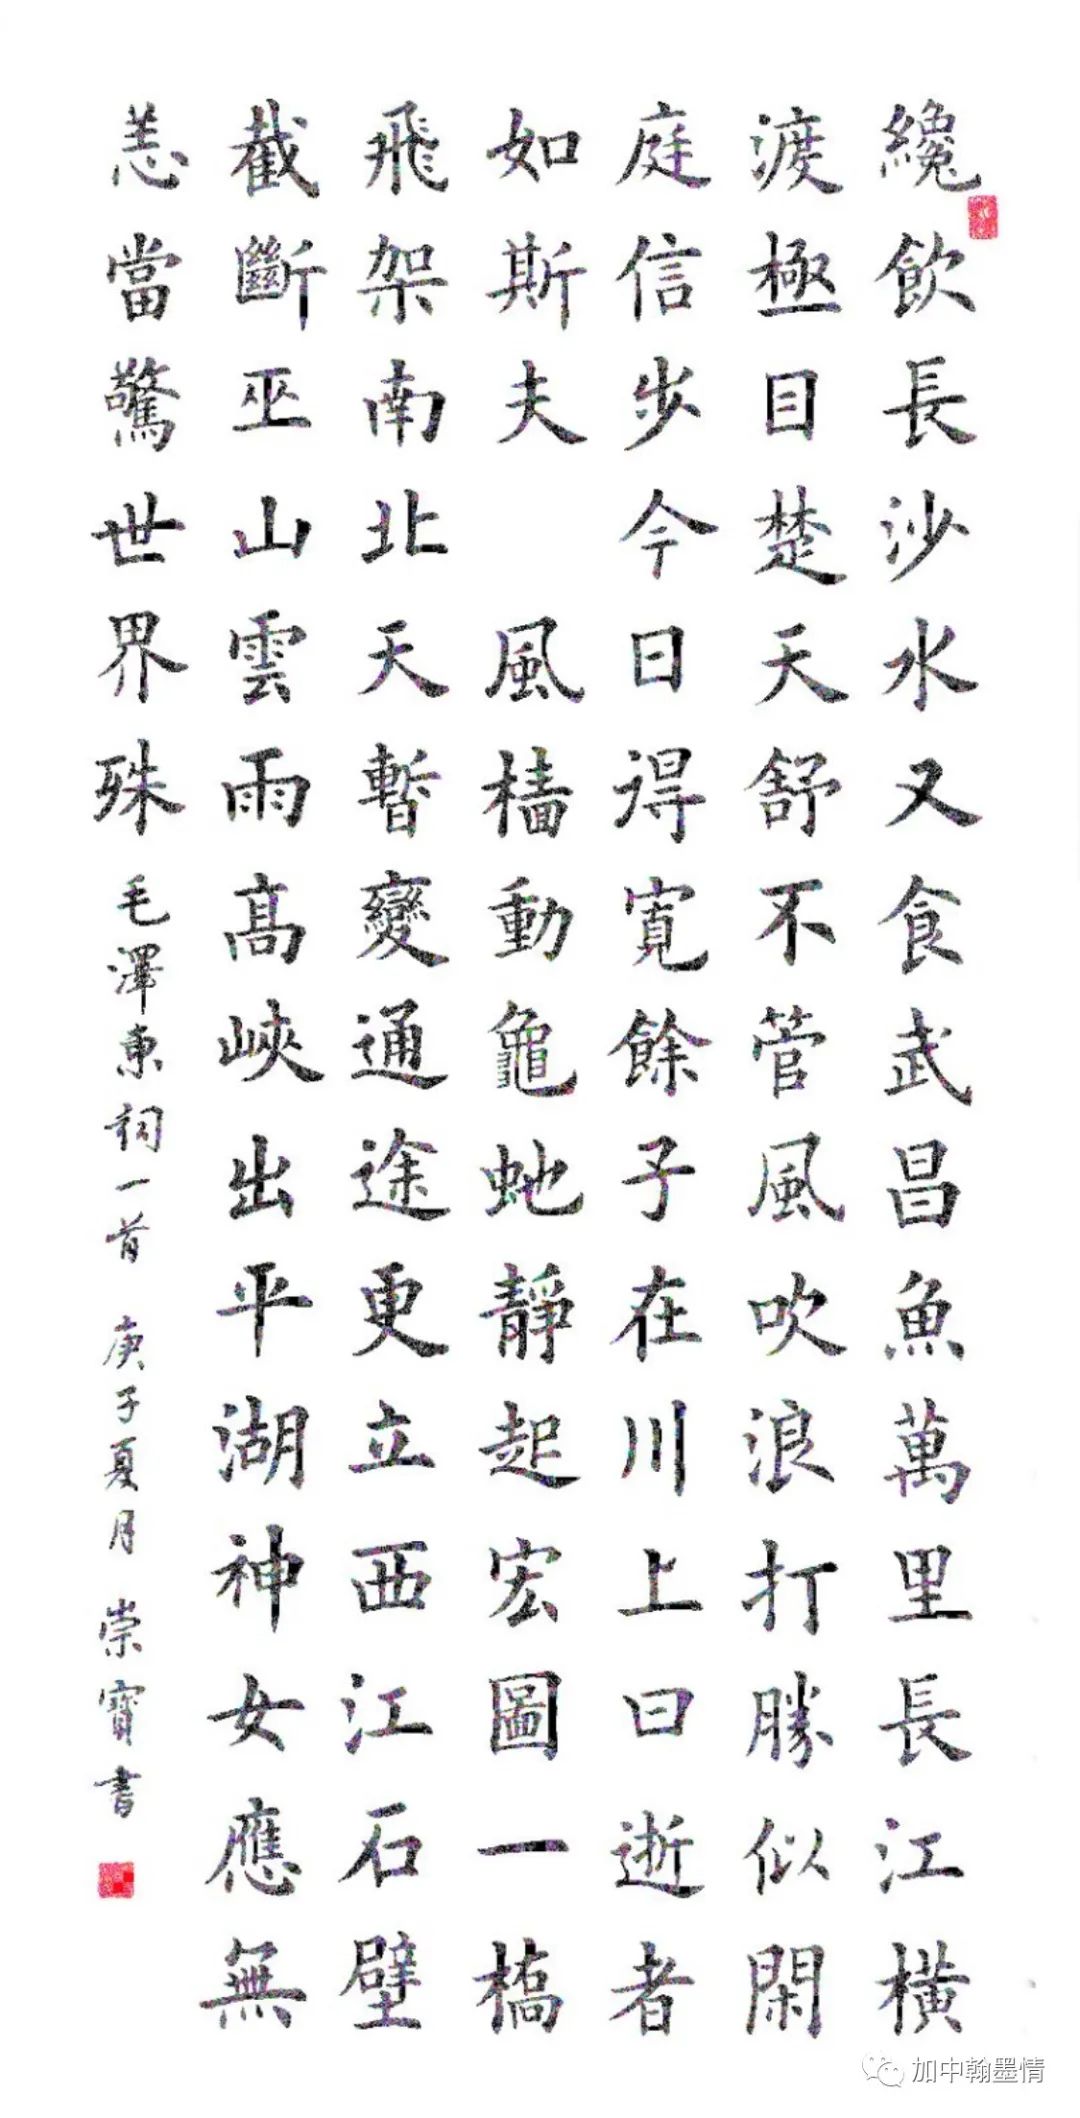 纔飲長沙水又食武昌魚萬里長江橫
渡極目楚天舒不管風吹浪打勝似閑
庭信步今日得寬餘子在川上曰逝者
如斯夫 風樯動龜虵靜起宏圖一橋
飛架南北天暫變通途更立西江石壁
截斷巫山雲雨髙峽出平湖神女應無
恙當驚世界殊 毛澤東詞一首 庚子夏月 崇寶書
加中翰墨情